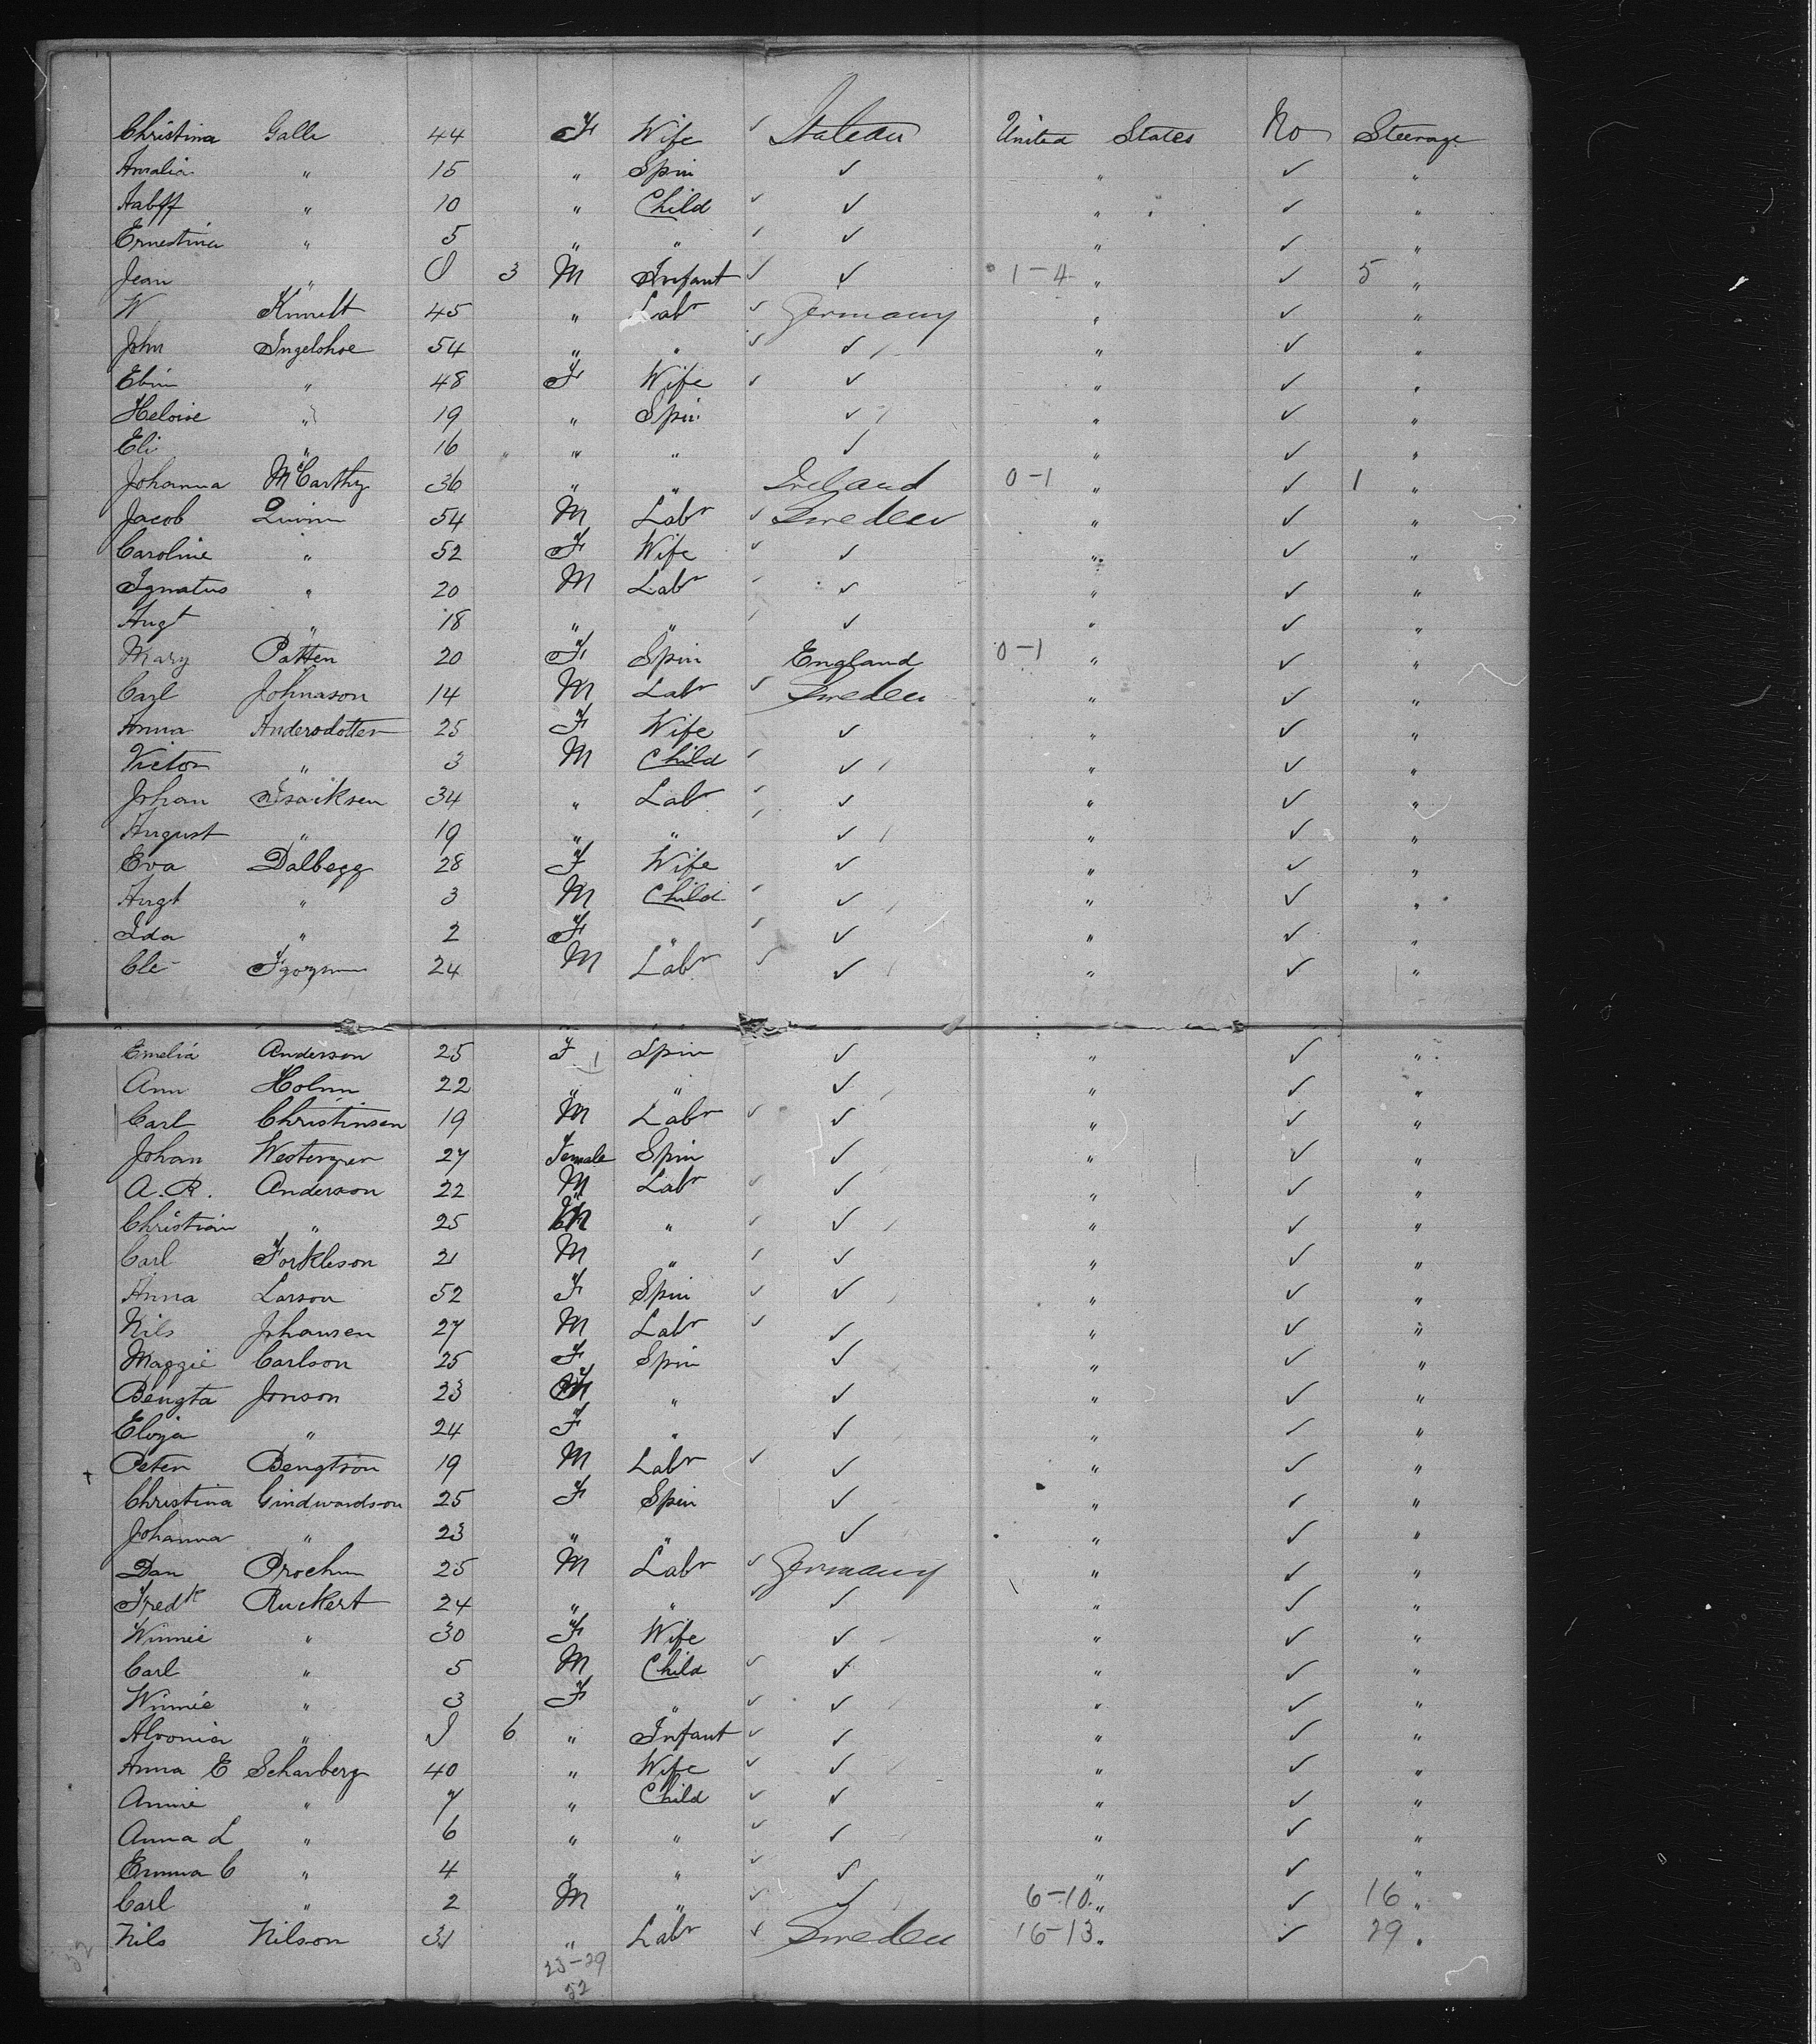 Christina Galle 44 F Wife ✓ Italian United States No Steerage
Amalia " 15 " Spin ✓ " ✓ "
" 10 " Child ✓ ✓ " ✓ "
Ernestina " 5 " " ✓ ✓ " ✓ "
Jean " 0 3 M Infant ✓ ✓ 1-4 " ✓ 5 "
W 45 " Labr ✓ Germany " ✓ "
John Ingelshoe 54 " " ✓ ✓ " ✓ "
" 48 F Wife ✓ ✓ " ✓ "
Heloise " 19 " Spin ✓ " ✓ "
Eli " 16 " " " ✓ " ✓ "
Johanna McCarthy 36 " " Ireland 0-1 " ✓ 1 "
Jacob Quinn 54 M Labr ✓ Sweden " ✓ "
Caroline " 52 F Wife ✓ ✓ " ✓ "
Ignatus " 20 M Labr ✓ ✓ " ✓ "
Augt " 18 " " ✓ ✓ " ✓ "
Mary Patten 20 F Spin England 0-1 " ✓ "
Carl Johnason 14 M Labr ✓ Sweden " ✓ "
Anna Andersdotter 25 F Wife ✓ " ✓ "
Victor " 3 M Child ✓ ✓ " ✓ "
Johan Isaiksen 34 " Labr ✓ ✓ " ✓ "
August " 19 " " ✓ ✓ " ✓ "
Eva Dalbegg 28 F Wife ✓ " ✓ "
Augt " 3 M Child ✓ ✓ " ✓ "
Ida " 2 F " ✓ ✓ " ✓ "
24 M Labr ✓ ✓ " ✓ "
Emelia Anderson 25 F 1 Spin ✓ " ✓ "
Ann Holmn 22 " " ✓ " ✓ "
Carl Christinsen 19 M Labr ✓ ✓ " ✓ "
Johan 27 Female Spin ✓ " ✓ "
A. R. Anderson 22 M Labr ✓ ✓ " ✓ "
Christian " 25 M " ✓ ✓ " ✓ "
Carl Forkleson 21 M " ✓ ✓ " ✓ "
Anna Larson 52 F Spin ✓ ✓ " ✓ "
Nils Johansen 27 M Labr ✓ ✓ " ✓ "
Maggie Carlson 25 F Spin ✓ " ✓ "
Bengta Jonson 23 F " ✓ " ✓ "
" 24 F " ✓ " ✓ "
+ Peter Bengtson 19 M Labr ✓ ✓ " ✓ "
Christina Gindwardson 25 F Spin ✓ " ✓ "
Johanna " 23 " " ✓ " ✓ "
Dan Prochn 25 M Labr ✓ Germany " ✓ "
Fredk Ruckert 24 " " ✓ ✓ " ✓ "
Winnie " 30 F Wife ✓ " ✓ "
Carl " 5 M Child ✓ ✓ " ✓ "
Winnie " 3 F " ✓ ✓ " ✓ "
" 0 6 " Infant ✓ ✓ " ✓ "
Anna E Scharberg 40 " Wife ✓ ✓ " ✓ "
Annie " 7 " Child ✓ ✓ " ✓ "
Anna L " 6 " " ✓ ✓ " ✓ "
Emma C " 4 " " ✓ ✓ " ✓ "
Carl " 2 M " ✓ ✓ 6-10 " ✓ 16 "
Nils Nilson 31 " Labr ✓ Sweden 16-13 " ✓ 29 "
23-29
52
52